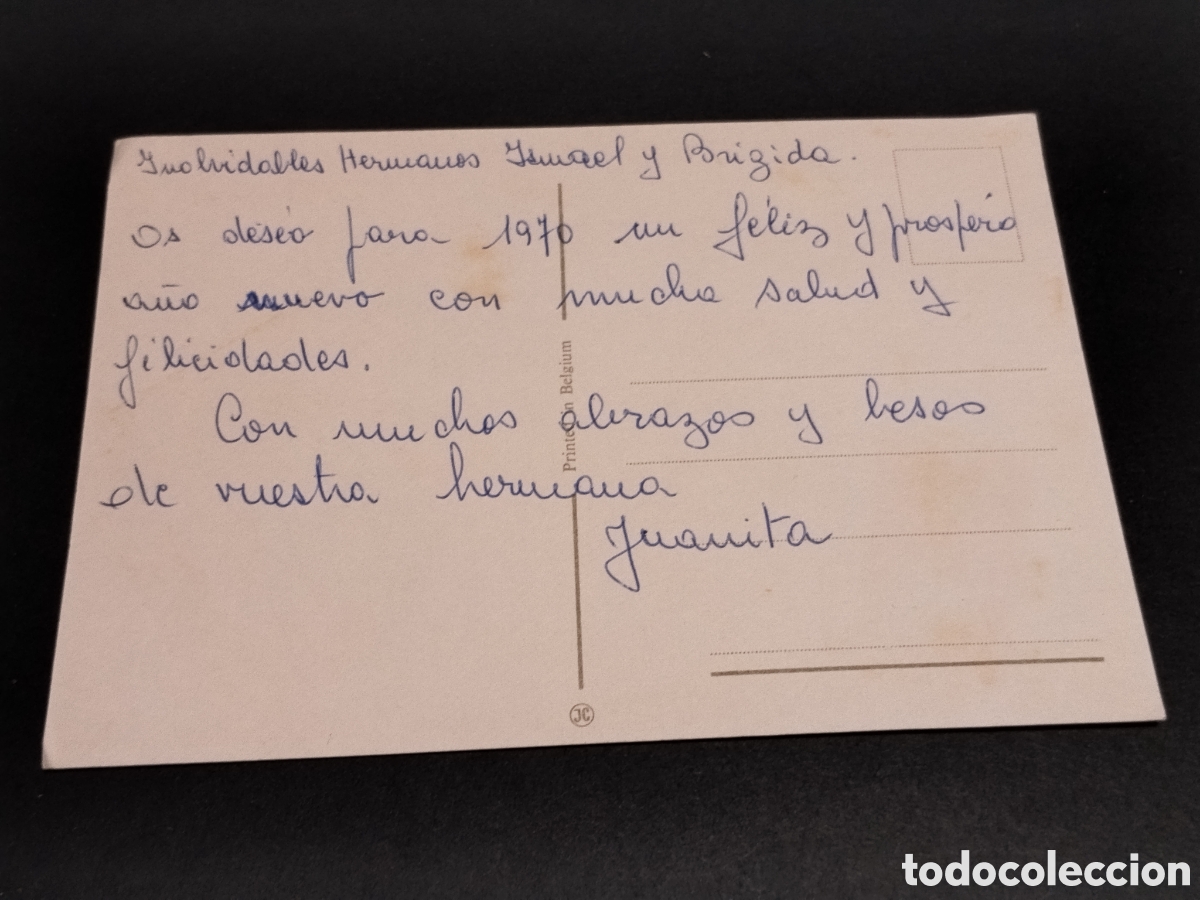 Inolvidables Hermanos Ismael y Brizida.
Os deséo para 1970 un féliz y prosperó
año nuevo con mucha salud y
filicidades.
Con muchos abrazos y besos
de vuestra hermana
Juanita
Printed in Belgium
JC
todocoleccion